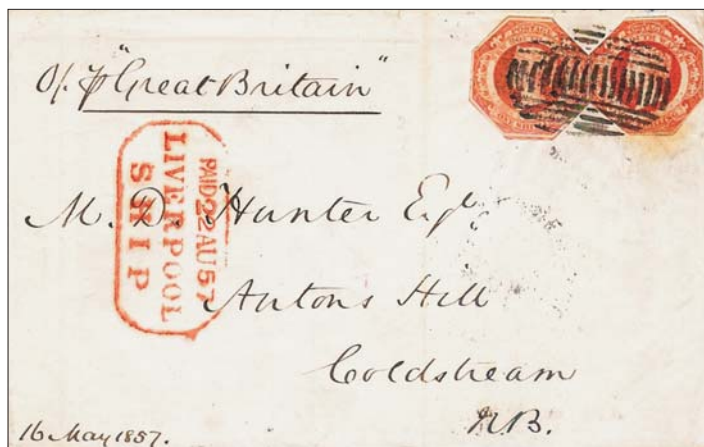 "Great Britain"
PAID 22 AU 57
LIVERPOOL
SHIP
M. D. Hunter Esqr.
Antons Hill
Coldstream
N.B.
16 May 1857.